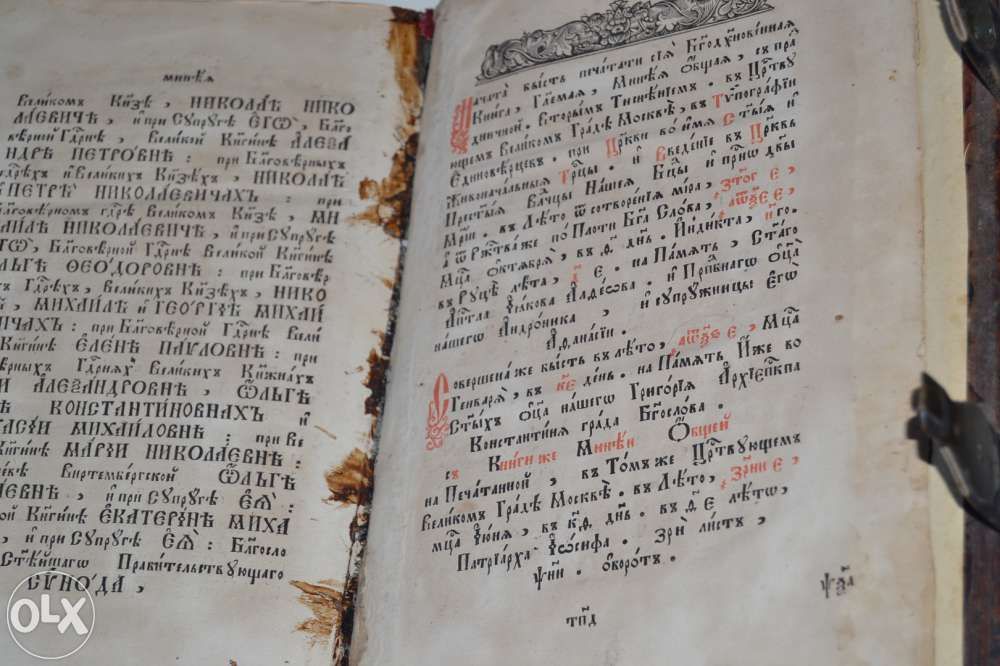 минеѧ
Великомъ Кнѧзѣ, НИКОЛАѢ НИКО
ЛАЕВИЧѢ, и при Сꙋпрꙋгѣ ЕГѠ, Благо
вѣрнй Гдрнѣ, Великой Кнгинѣ АЛЕѮА
НДРѢ ПЕТРОВНѢ: при Блговѣрныхъ
и Великихъ Кнѧзѣхъ, НИКОЛАѢ
ПЕТРѢ НИКОЛАЕВИЧАХЪ: при
Благовѣрномъ гдрѣ Великомъ Кнѧзѣ, МИ
АИЛѢ НИКОЛАЕВИЧѢ, и при Сꙋпрꙋгѣ
ЕГѠ, Блговѣрной Гдрнѣ Великой Кнгинѣ
ОЛЬГѢ ѲЕОДОРОВНѢ: при Блговѣр
Гдрѣхъ, Великихъ Кнѧзѣхъ, НИКО
МИХАИЛѢ и ГЕѠРГІѢ МИХАИ
ВИЧАХЪ: при Блговѣрной Гдрнѣ Вели
Кнгинѣ ЕЛЕНѢ ПАѴЛОВНѢ: при
вѣрныхъ Гдрнѧхъ Великихъ Кнжнахъ
И АЛЕѮАНДРОВНѢ, ѾЛЬГѢ
КОНСТАНТИНОВНАХЪ и
ТАСІИ МИХАИЛОВНѢ: при Ве
Кнгинѣ МАРІИ НИКОЛАЕВНѢ:
Виртембергской ѾЛЬГѢ
ЛАЕВНѢ, и при Сꙋпрꙋгѣ ЕѦ:
ой Кнгинѣ ЕКАТЕРІНѢ МИХА
, и при Сꙋпрꙋгѣ ЕѦ: Блгосло
Стѣйшагѡ Правительствꙋющагѡ
СѴНОДА,
Начата бысть печатати сїѧ Бгодꙋхновеннаѧ
Книга, Глемаѧ, Минеѧ Общаѧ, съ пра
дничной. Вторымъ Тисненїемъ. въ Црствꙋ
ющемъ Великомъ Градѣ Москвѣ, въ Тѵпографїи
Единовѣрцевъ. при Цркви во имѧ Стыѧ и
Живоначальныѧ Трцы. и Введенїе въ Црковь
Престыѧ Влчцы Нашеѧ Бцы и приѡ двы
Мрїи. въ Лѣто ѿ сотворенїѧ міра,
а ѿ Ржтва же по Плоти Бга Слова,
Мца Октѧбрѧ, въ днь. Індикта,
въ Рꙋцѣ лѣта, Е. на Памѧть, Стаго
Апсла Іѡкова Алфеѡва. и Прпбнагѡ Оца
нашегѡ Андроника, и сꙋпрꙋжницы Егѡ
Аѳанасїи.
Совершена же бысть въ лѣто, Мца
Генварѧ, въ день. на Памѧть Иже во
Стыхъ Оца нашегѡ Григорїѧ Архїепкпа
Константинѧ града Бгослова.
съ Книги же Минеи Общей
на Печатанной, въ Томъ же Црствꙋющемъ
Великомъ Градѣ Москвѣ. въ Лѣто,
мца Іꙋнѧ, въ днь. въ Е лѣтѡ,
Патрїарха Іѡсифа. Зри листъ,
оборотъ.
тпд
OLX